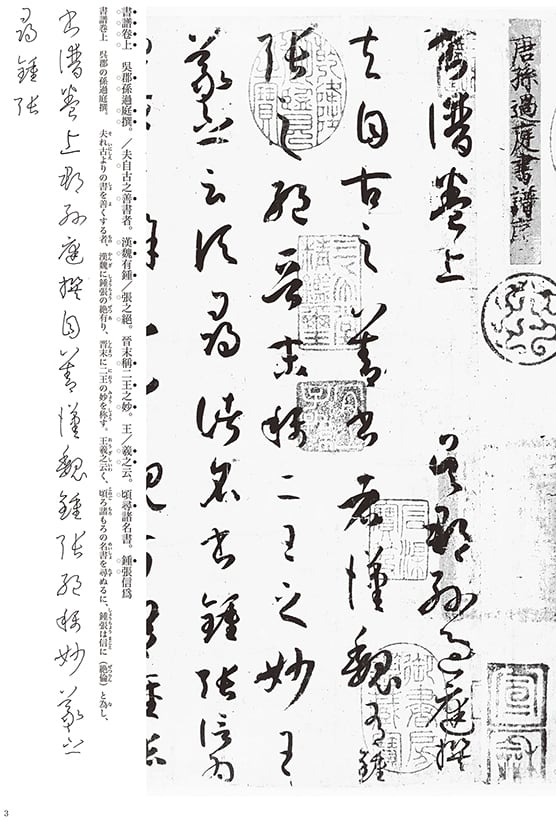 唐孫過庭書譜序
書譜卷上 吳郡孫過庭撰
夫自古之善書者漢魏有鍾
張之絕晉末稱二王之妙王
羲之云頃尋諸名書鍾張信為
書譜卷上 吳郡孫過庭撰。／夫自古之善書者。漢魏有鍾／張之絕。晉末稱二王之妙。王／羲之云。頃尋諸名書。鍾張信爲
書譜卷上 吳郡の孫過庭撰。 夫れ古よりの書を善くする者、漢魏に鍾張の絕有り、晋末に二王の妙を称す。王羲之云く、頃ろ諸もろの名書を尋ぬるに、鍾張は信に（絶倫）と為し、
書譜卷上郡孫庭撰自善漢魏鍾張絕稱妙羲之
尋鍾張
3